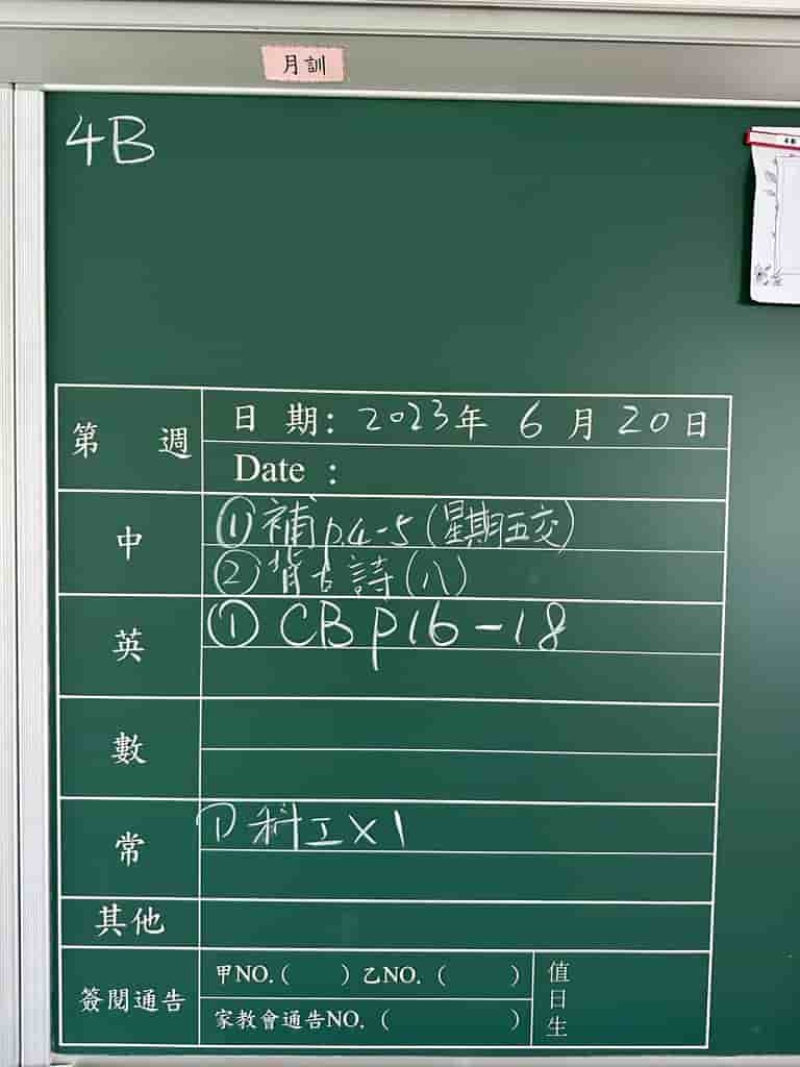 月訓
4B
第 週
日 期: 2023年 6 月 20 日
Date :
中
① 補 p.4-5 (星期五交)
② 背古詩(八)
英
① CB p16-18
數
常
① 科工×1
其他
簽閱通告
甲NO.( ) 乙NO. ( )
家教會通告NO. ( )
值日生